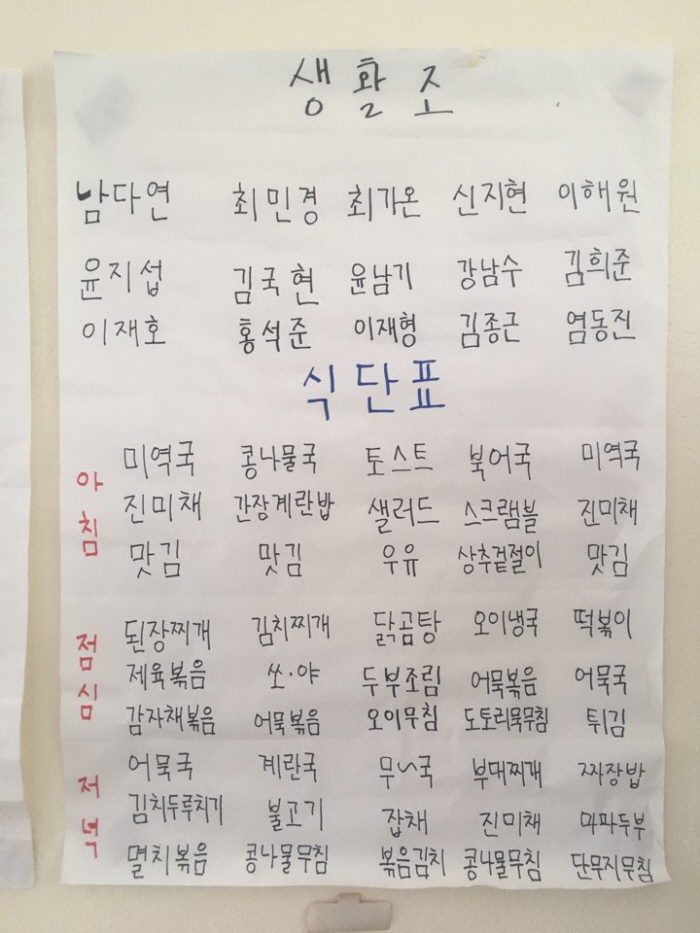 생활조
남다연 최민경 최가온 신지현 이해원
윤지섭 김국현 윤남기 강남수 김희준
이재호 홍석준 이재형 김종근 염동진
식단표
아침
미역국 콩나물국 토스트 북어국 미역국
진미채 간장계란밥 샐러드 스크램블 진미채
맛김 맛김 우유 상추겉절이 맛김
점심
된장찌개 김치찌개 닭곰탕 오이냉국 떡볶이
제육볶음 쏘·야 두부조림 어묵볶음 어묵국
감자채볶음 어묵볶음 오이무침 도토리묵무침 튀김
저녁
어묵국 계란국 무국 부대찌개 짜장밥
김치두루치기 불고기 잡채 진미채 마파두부
멸치볶음 콩나물무침 볶음김치 콩나물무침 단무지무침